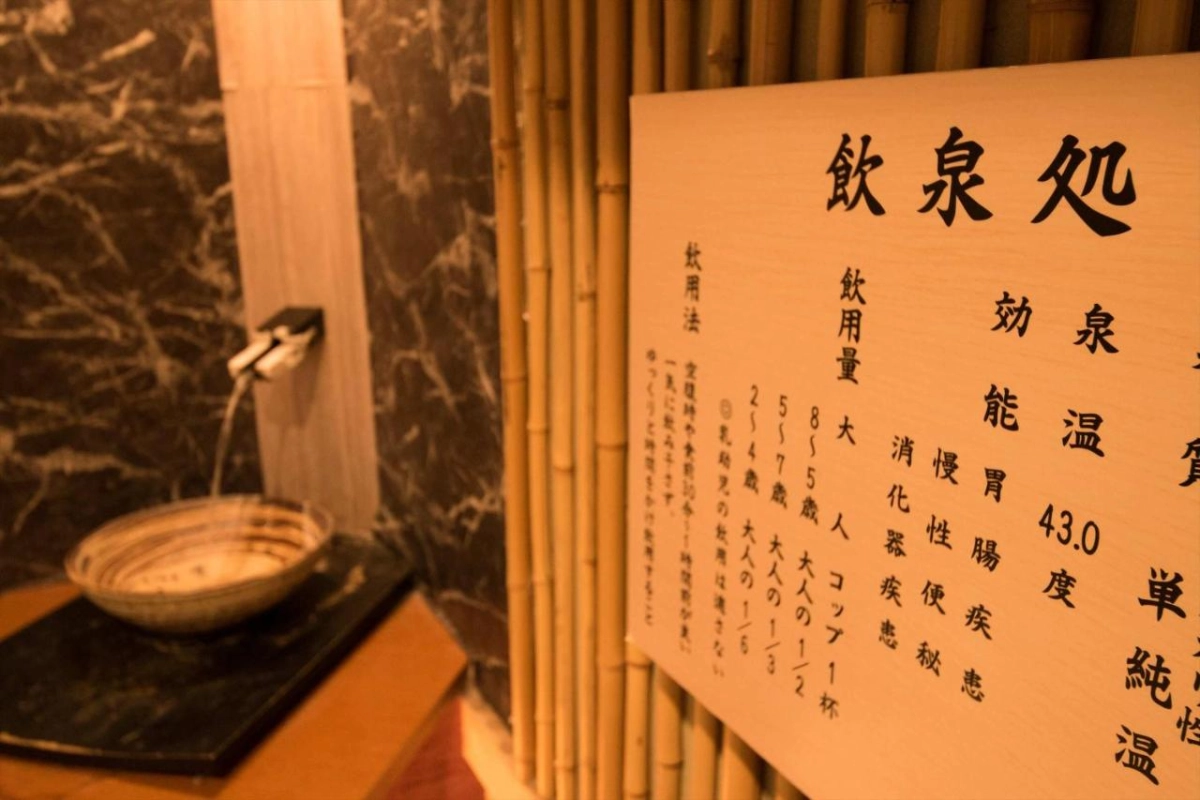 飲泉処
質 性
単純温
泉温 43.0度
効能 胃腸疾患
慢性便秘
消化器疾患
飲用量 大人 コップ1杯
8〜5歳 大人の1/2
5〜7歳 大人の1/3
2〜4歳 大人の1/6
◎乳幼児の飲用は適さない
飲用法 空腹時や食前30分〜1時間前が良い
一気に飲み干さず、
ゆっくりと時間をかけ飲用すること